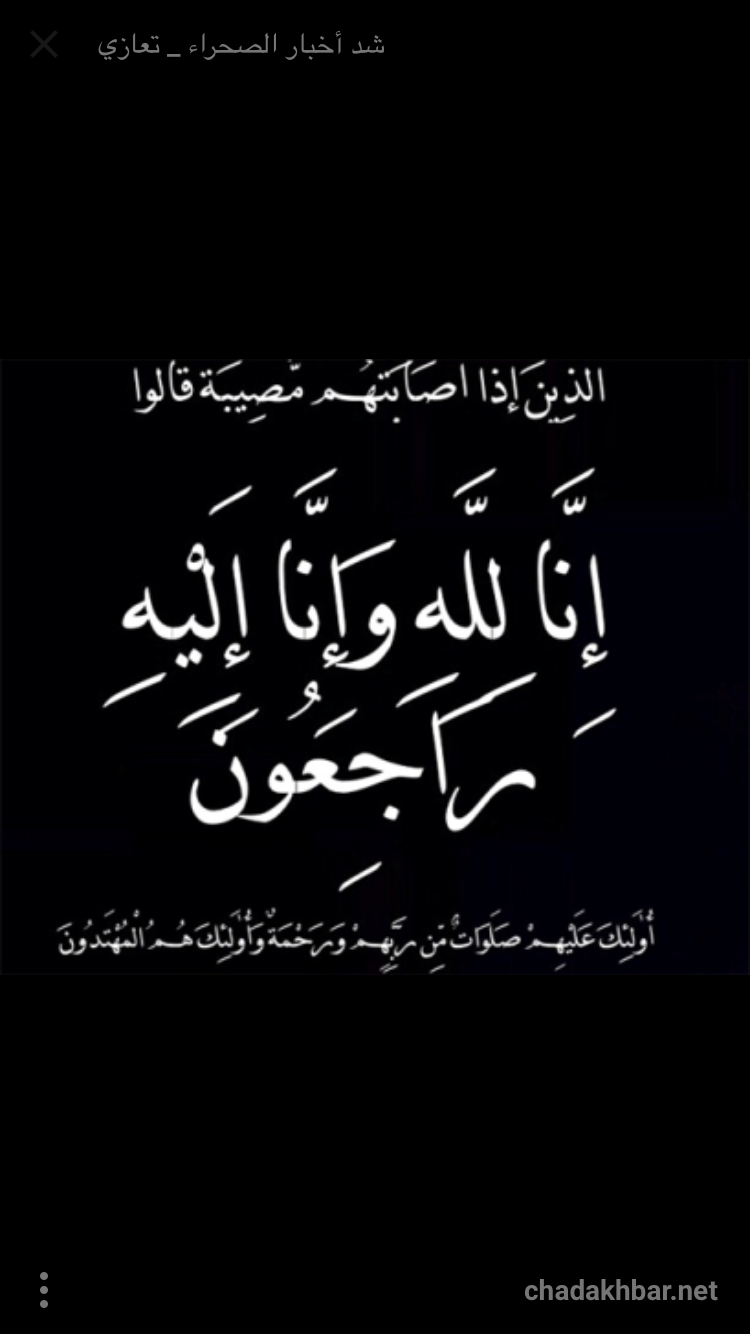 شد أخبار الصحراء _ تعازي
الذِينَ إِذا اصَابَتهُم مّصِيبَة قالوا
إِنَّا لله وَإِنَّا إِلَيْهِ
رَاجَعُونَ
أُولَئِكَ عَلَيْهِمْ صَلَوَاتٌ مِّن رَبِّهِمْ وَرَحْمَةٌ وَأُولَئِكَ هُمُ الْمُهْتَدُونَ
chadakhbar.net